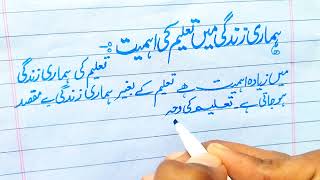 ہماری زندگی میں تعلیم کی اہمیت :-
تعلیم کی ہماری زندگی
میں زیادہ اہمیت ہے تعلیم کے بغیر ہماری زندگی بے مقصد
ہو جاتی ہے۔ تعلیم کی وجہ